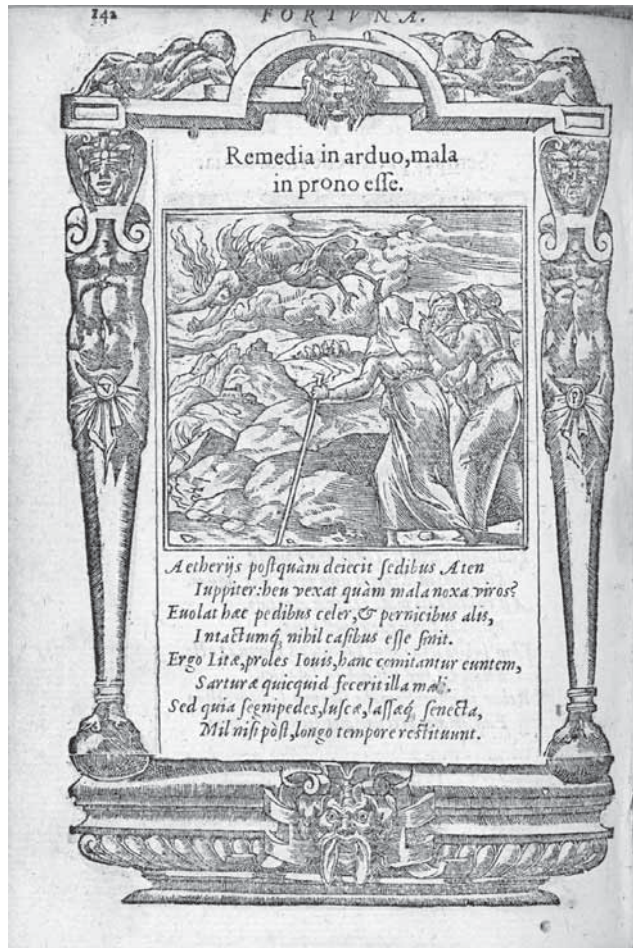 142
FORTVNA.
Remedia in arduo, mala
in prono eſſe.
Aetherijs poſtquàm deiecit ſedibus Aten
Iuppiter: heu vexat quàm mala noxa viros?
Euolat hæc pedibus celer, & pernicibus alis,
Intactumq́; nihil caſibus eſſe ſinit.
Ergo Litæ, proles Iouis, hanc comitantur euntem,
Sarturæ quicquid fecerit illa mali.
Sed quia ſegnipedes, luſcæ, laſſæq́; ſenecta,
Nil niſi pòſt, longo tempore reſtituunt.